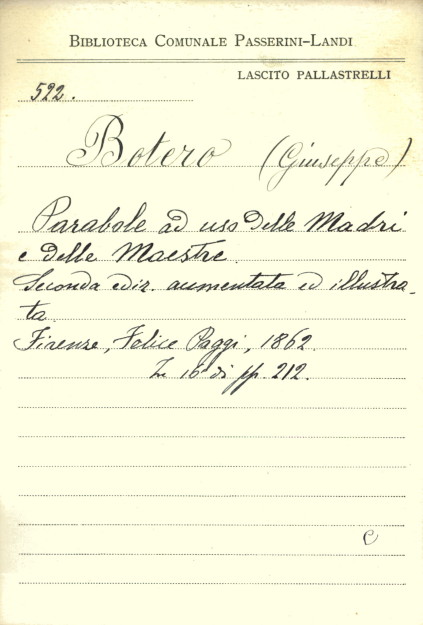 BIBLIOTECA COMUNALE PASSERINI-LANDI
LASCITO PALLASTRELLI
522.
Botero (Giuseppe)
Parabole ad uso delle Madri
e delle Maestre.
Seconda ediz. aumentata ed illustra-
ta.
Firenze, Felice Paggi, 1862.
In 16° di pp. 212.
C